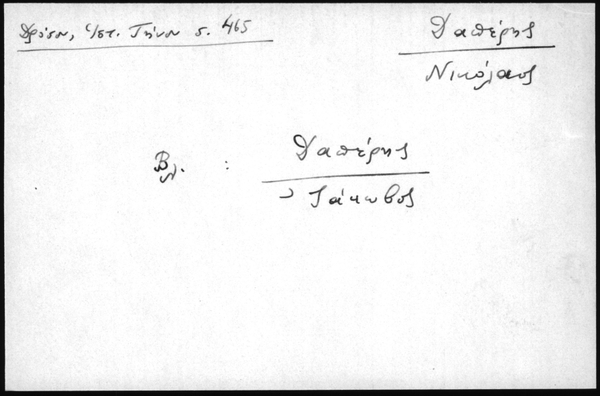 Δρόσου, Ἱστ. Τήνου σ. 465
Δαπέρης
Νικόλαος
Βλ. :
Δαπέρης
Ἰάκωβος